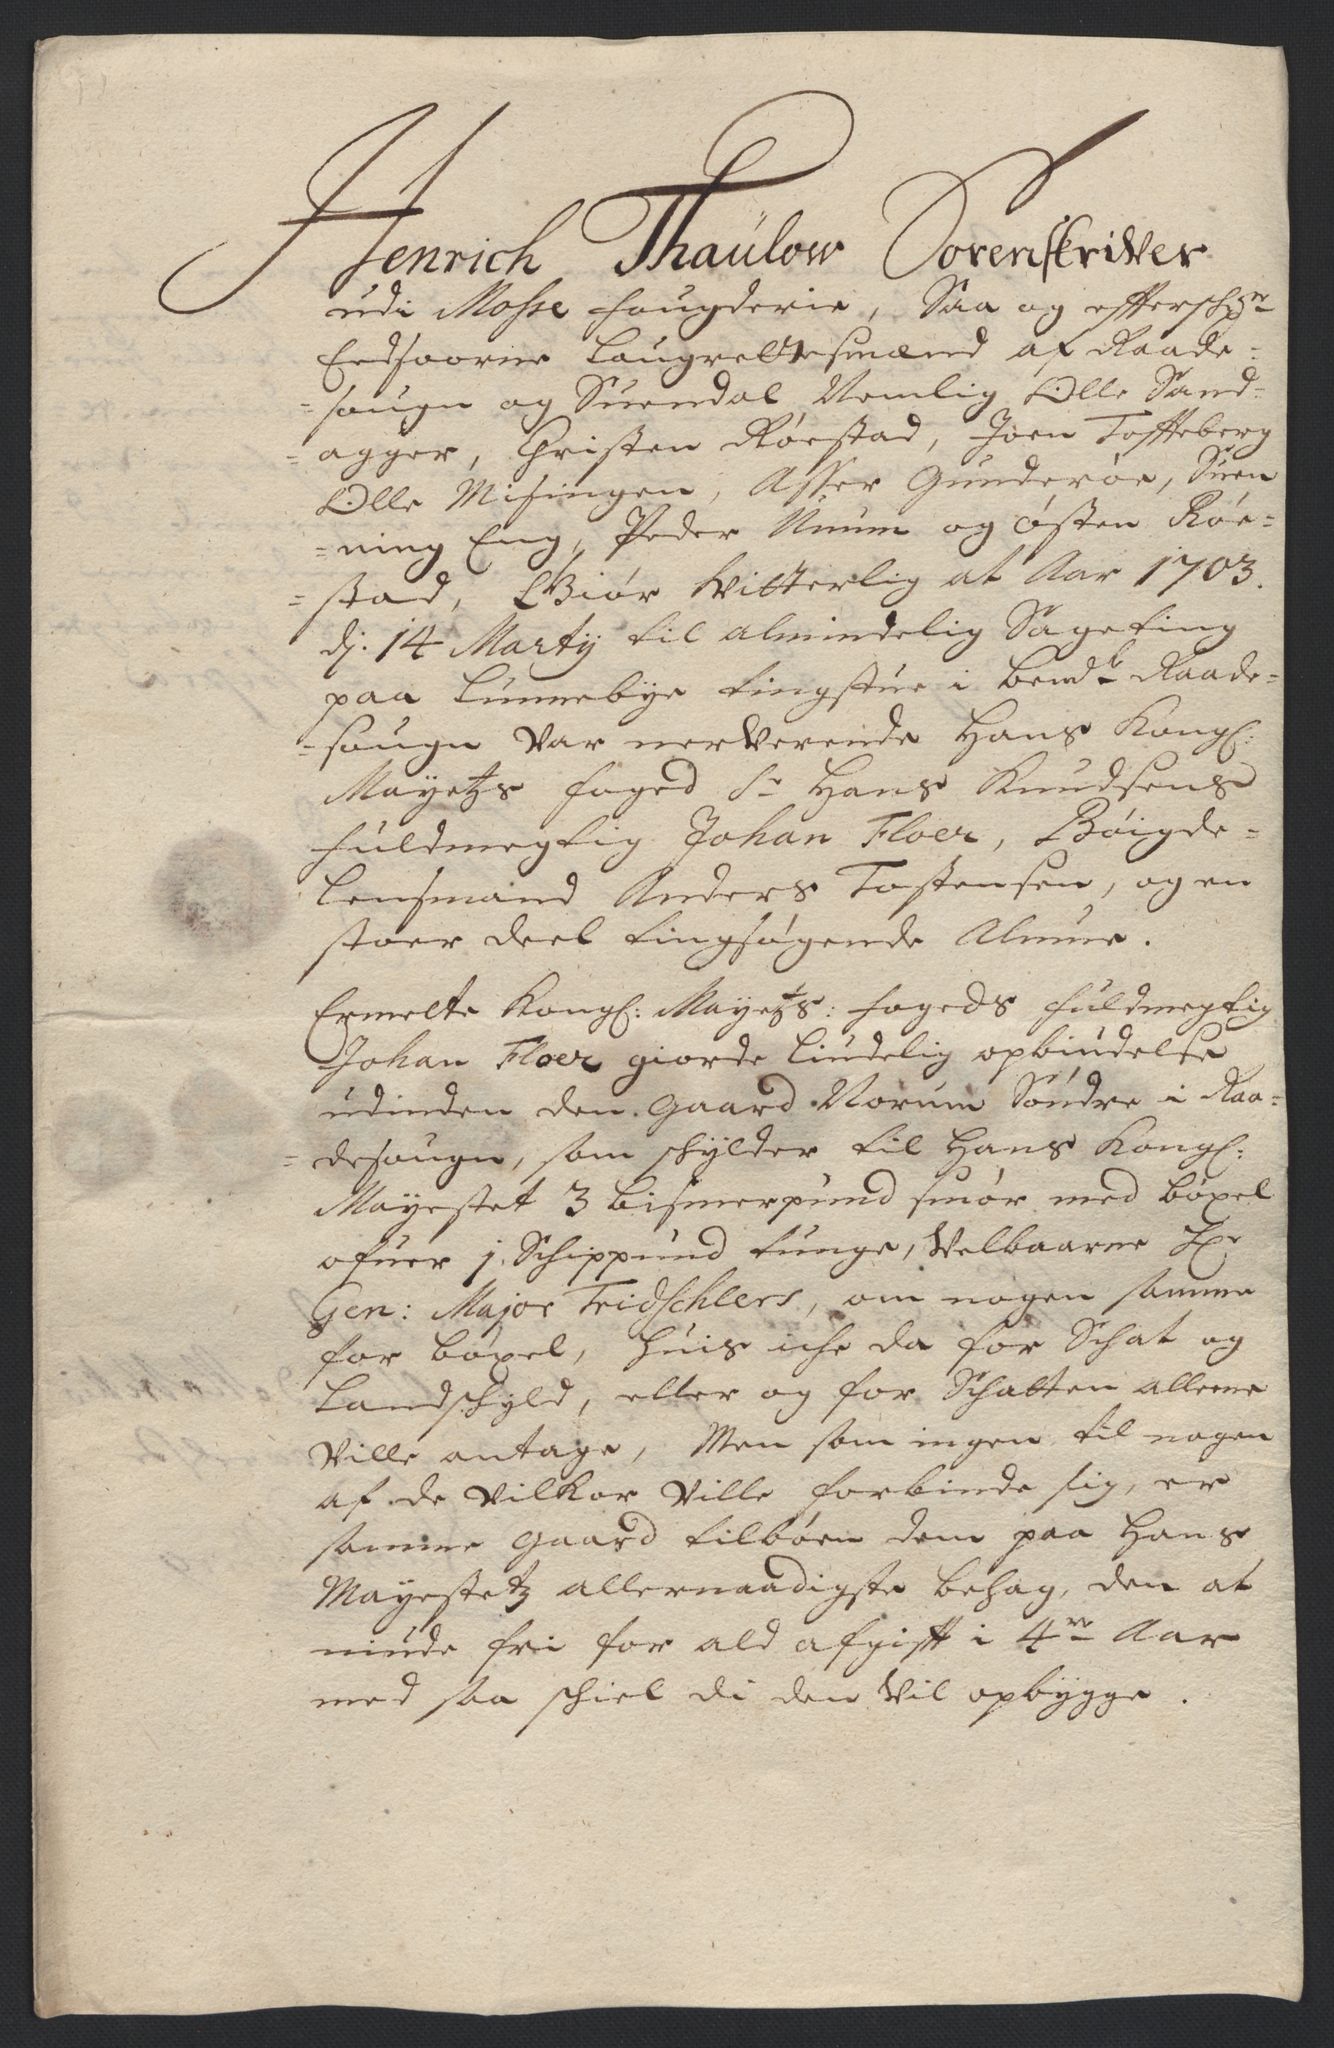 Henrich Thaulow Sorenskriver
udi Mosse fougderie, Saa og effterschr:ne
Eedsoorne Laugrettesmænd af Raade=
=sougn og Suendal Nemlig Olle Sand=
=agger, Christen Róestad, Joen Toffteberg
Olle Misingen, Asser Gunderóe, Suen
=ning Eng, Peder Unum og Østen Róe=
=stad, Giór Vitterlig at Aar 1703.
dj. 14 Martij til almindelig Sageting
paa Lunnebye tingstue i bemdte Raade=
=sougn var nerverende Hans Kongl:
Mayetzs foged Sr Hans Knudsens
fuldmegtig Johan Floer, Bóigde=
Lensmand Anders Tostensen, og en
stoer deel tingsógende Almue.
Ermelte Kongl: Mayetzs: fogeds fuldmegtig
Johan Floer giorde liudelig opbiudelse
udinden den Gaard Norum Sóndre i Raa=
=desougn, som schylder til Hans Kongl:
Mayestet 3 bismerpund smór med bóxel
ofuer 1 Schippund tunge, Velbaarne Hr
Gen: Major Tridschlers, om nogen samme
for bóxel, huis iche da for Schat og
Landschyld, eller og for Schatten alleene
ville antage, Men som ingen til nogen
af de vilkor ville forbinde sig, er
samme Gaard tilbóen dem paa Hans
Mayestetz allernaadigste behag, den at
niude fri for ald afgifft i 4re Aar
med saa schiel di den vil opbygge.